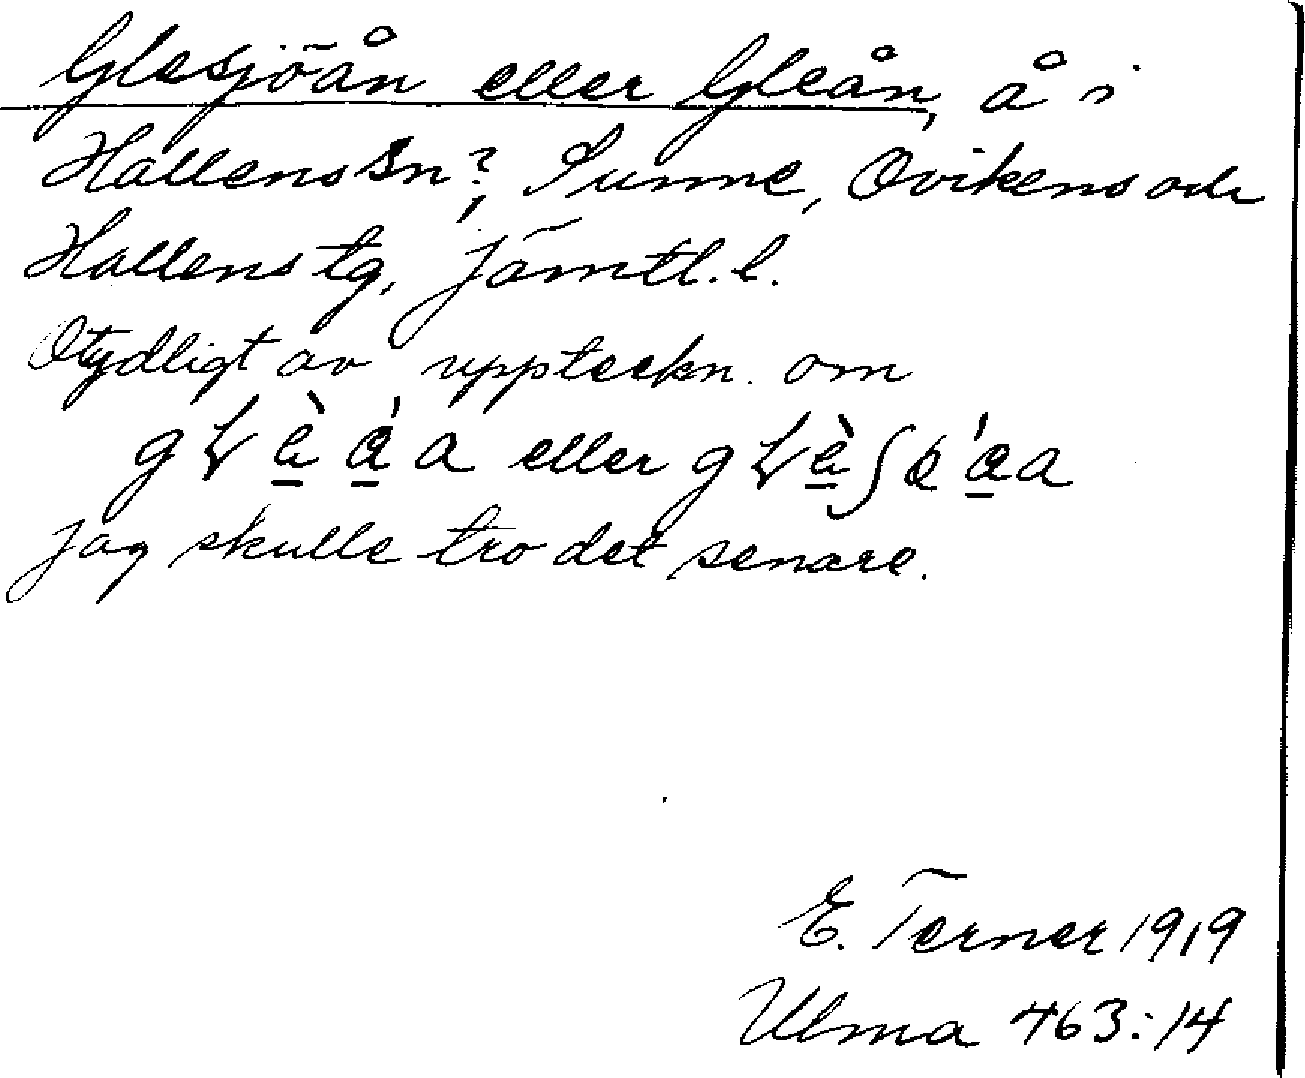 Glesjöån eller Gleån, å i
Hallens sn?, Sunne, Ovikens och
Hallens tg, Jämtl. l.
Otydligt av uppteckn. om
eller
Jag skulle tro det senare.
E. Terner 1919
Ulma 463:14